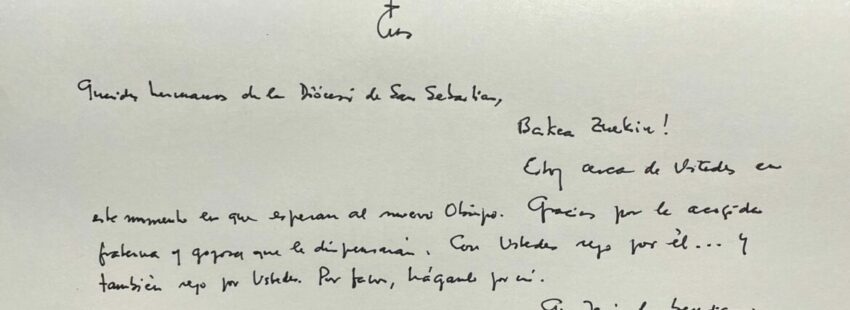 Queridos hermanos de la Diócesis de San Sebastian,
Bakea Zuekin!
Estoy cerca de Ustedes en
este momento en que esperan al nuevo Obispo. Gracias por la acogida
fraterna y gozosa que le dispensarán. Con Ustedes rezo por él... y
también rezo por Ustedes. Por favor, háganlo por mí.